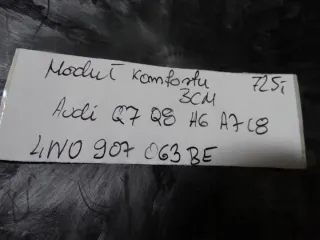 Moduł komfortu 725,-
BCM
Audi Q7 Q8 A6 A7 C8
4N0 907 063 BE